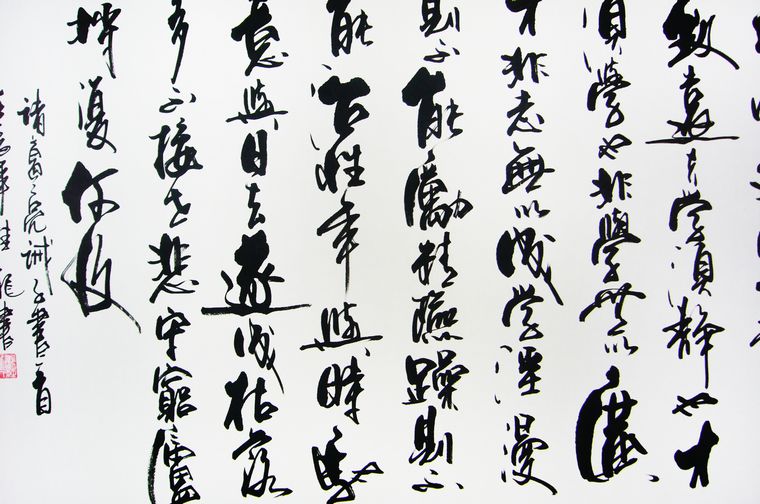 致遠夫學須靜也才
須學也非學無以廣
才非志無以成學淫漫
則不能勵精險躁則不
能治性年與時馳
意與日去遂成枯落
多不接世悲守窮廬
將復何及
諸葛亮誡子書一首
書